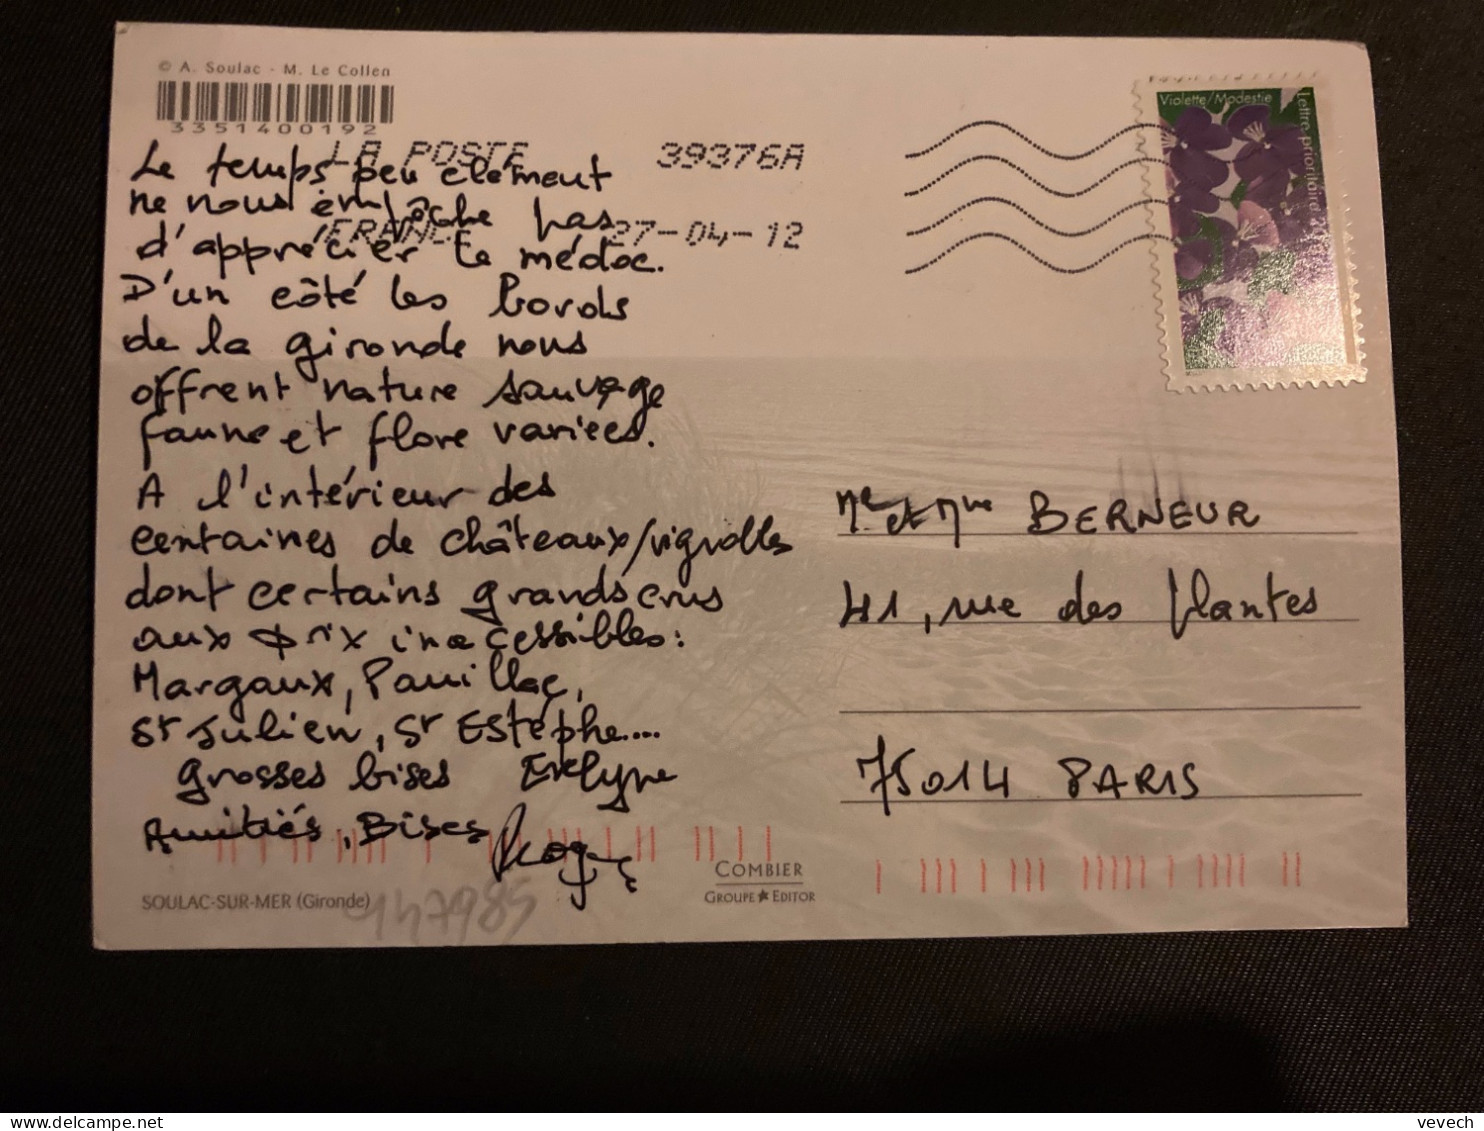 © A. Soulac - M. Le Collen
3351400192
LA POSTE 39376A
FRANCE 27-04-12
Violette/Modestie
Lettre prioritaire 20g
Le temps peu clément
ne nous empêche pas
d'apprécier le médoc.
D'un côté les bords
de la gironde nous
offrent nature sauvage
faune et flore variées.
A l'intérieur des
centaines de châteaux/vignobles
dont certains grands crus
aux prix inaccessibles:
Margaux, Pauillac,
St Julien, St Estèphe....
grosses bises Evelyne
Amitiés, Bises
Mr et Mme BERNEUR
41, rue des Plantes
75014 PARIS
COMBIER
GROUPE EDITOR
SOULAC-SUR-MER (Gironde)
147985
vevech